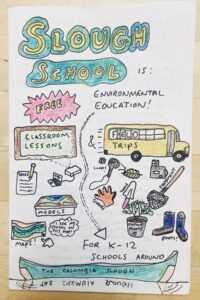 SLOUGH
SCHOOL IS:
FREE ENVIRONMENTAL
EDUCATION!
CLASSROOM
LESSONS
&
FIELD
TRIPS
MODELS
MAPS!
BOOTS!
FOR K-12
SCHOOLS AROUND
THE COLUMBIA SLOUGH